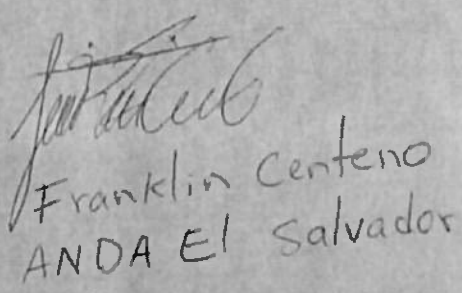 Franklin Centeno
ANDA El Salvador